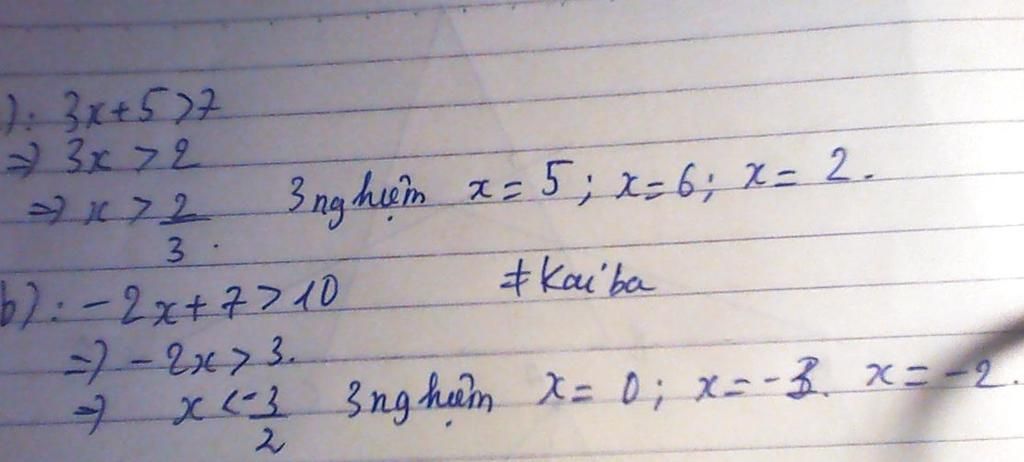 ): 3x+5>7
=> 3x > 2
=> x > 2/3. 3 nghiệm x = 5; x=6; x = 2.
b): -2x+7>10 #Kaiba
=) -2x > 3.
=) x < -3/2 3 nghiệm x = 0; x = -3. x = -2.